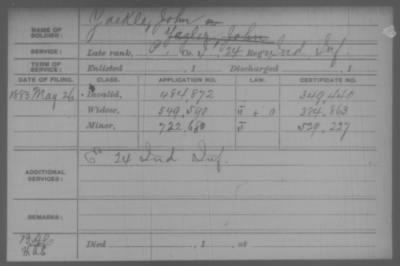 NAME OF SOLDIER: Yackley, John or
Yagley, John
SERVICE: Late rank, P. Co. I, 24 Reg't Ind Inf.
TERM OF SERVICE: Enlisted , 1 Discharged , 1
DATE OF FILING. CLASS. APPLICATION NO. LAW. CERTIFICATE NO.
1883 May 26 Invalid, 484,872 349,440
Widow, 549,590 384,863
Minor, 722,680 529,227
ADDITIONAL SERVICES: 24 Ind Inf.
REMARKS:
Died , 1 , at